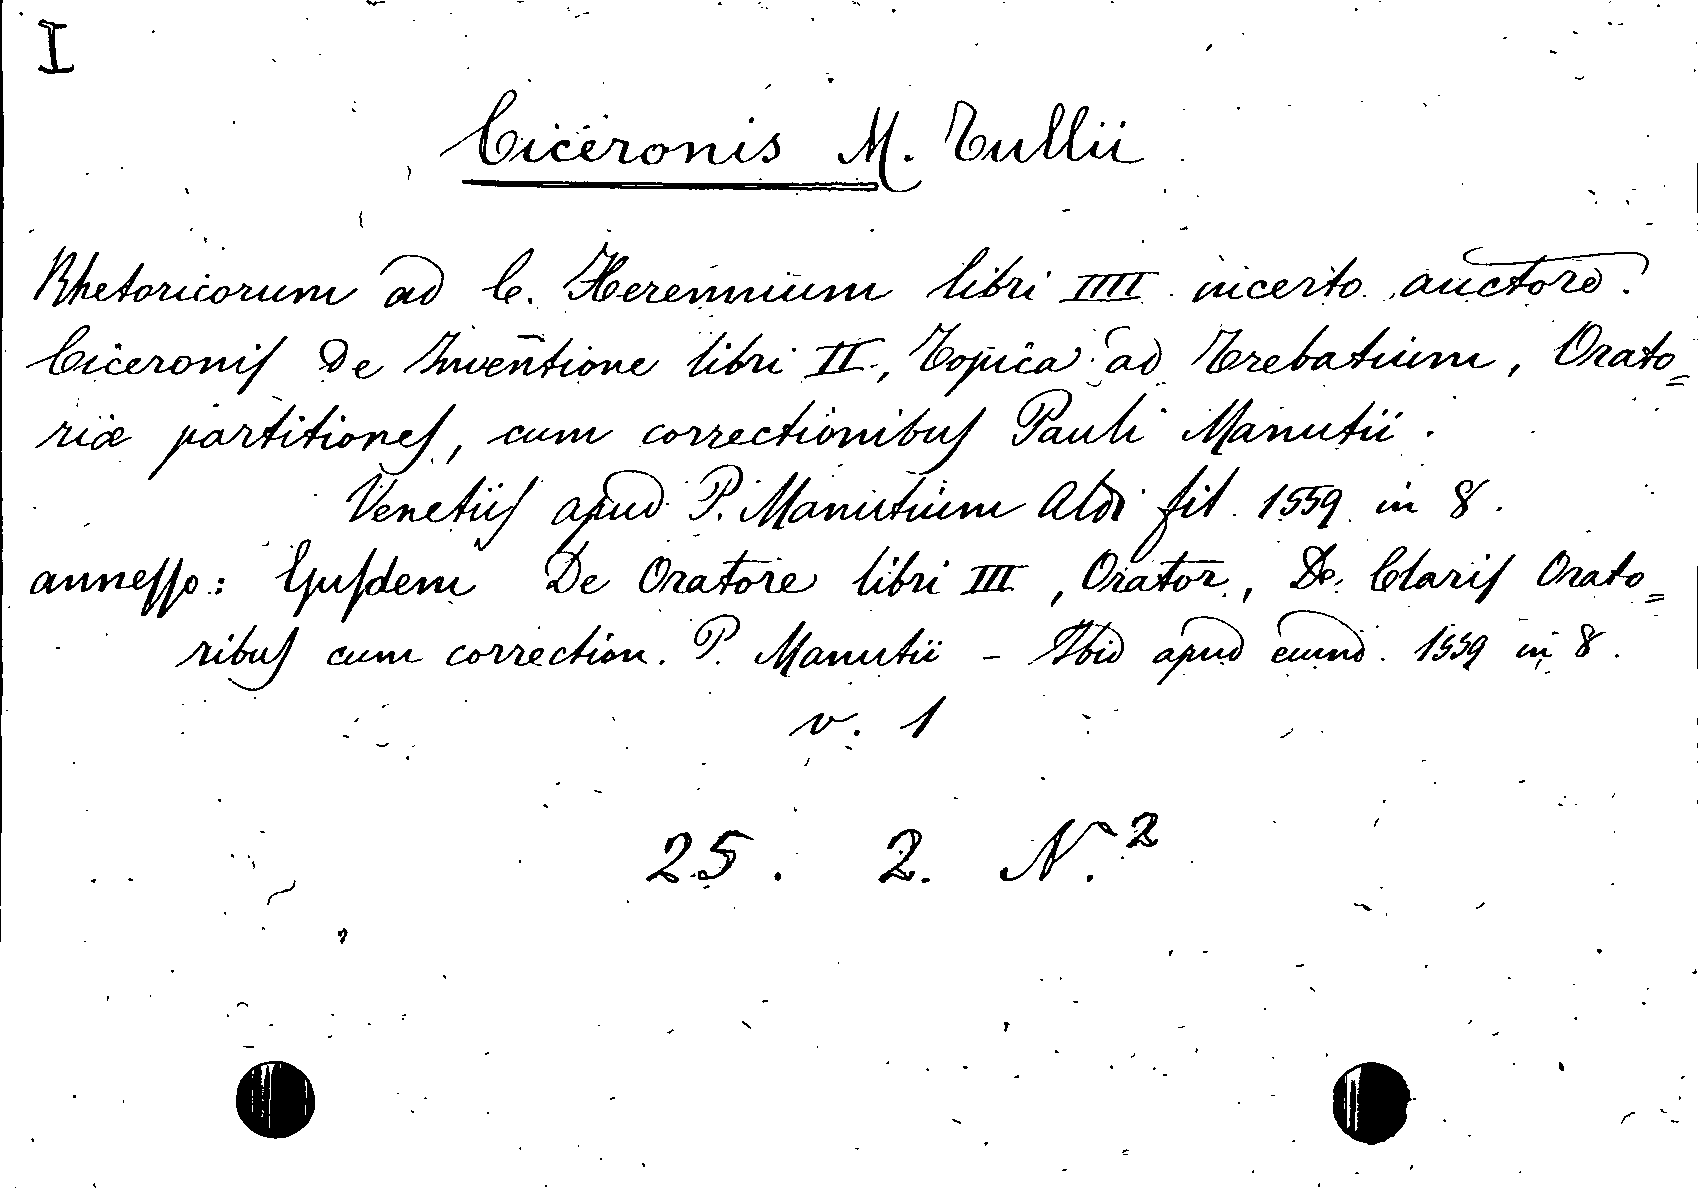 I
Ciceronis M. Tullii
Rhetoricorum ad C. Herennium libri IIII incerto auctore.
Ciceronis De Inventione libri II, Topica ad Trebatium, Orato=
riæ partitiones, cum correctionibus Pauli Manutii.
Venetiis apud P. Manutium Aldi fil. 1559 in 8.
annesso: Ejusdem De Oratore libri III, Orator, De Claris Orato=
ribus cum correction. P. Manutii - Ibid apud eumd. 1559 in 8.
v. 1
25. 2. N.²